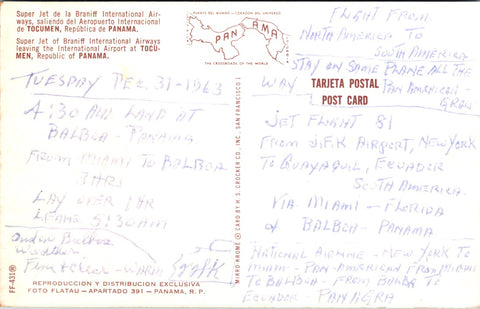 Super Jet de la Braniff International Air-
ways, saliendo del Aeropuerto Internacional
de TOCUMEN, República de PANAMA.
Super Jet of Braniff International Airways
leaving the International Airport at TOCU-
MEN, Republic of PANAMA.
PUENTE DEL MUNDO - CORAZON DEL UNIVERSO
PANAMA
THE CROSSROADS OF THE WORLD
TUESDAY DEC. 31-1963
4:30 AM LAND AT
BALBOA - PANAMA
FROM MIAMI TO BALBOA
3 HRS
LAY OVER 1 HR
LEAVE 5:30 AM
Weather
Fine + Clear - WARM
REPRODUCCION Y DISTRIBUCION EXCLUSIVA
FOTO FLATAU - APARTADO 391 - PANAMA, R. P.
FF-435
MIRRO-KROME ® CARD BY H. S. CROCKER CO., INC. SAN FRANCISCO 1
FLIGHT FROM
NORTH AMERICA TO
SOUTH AMERICA
STAY ON SAME PLANE ALL THE
WAY
TARJETA POSTAL
POST CARD
PAN AMERICAN -
JET FLIGHT 81
FROM J.F.K AIRPORT, NEW YORK
TO GUAYAQUIL, ECUADOR
SOUTH AMERICA
VIA MIAMI - FLORIDA
& BALBOA - PANAMA
NATIONAL AIRLINE - NEW YORK TO
MIAMI - PAN-AMERICAN FROM MIAMI
TO BALBOA - FROM BALBOA TO
ECUADOR - PANAGRA